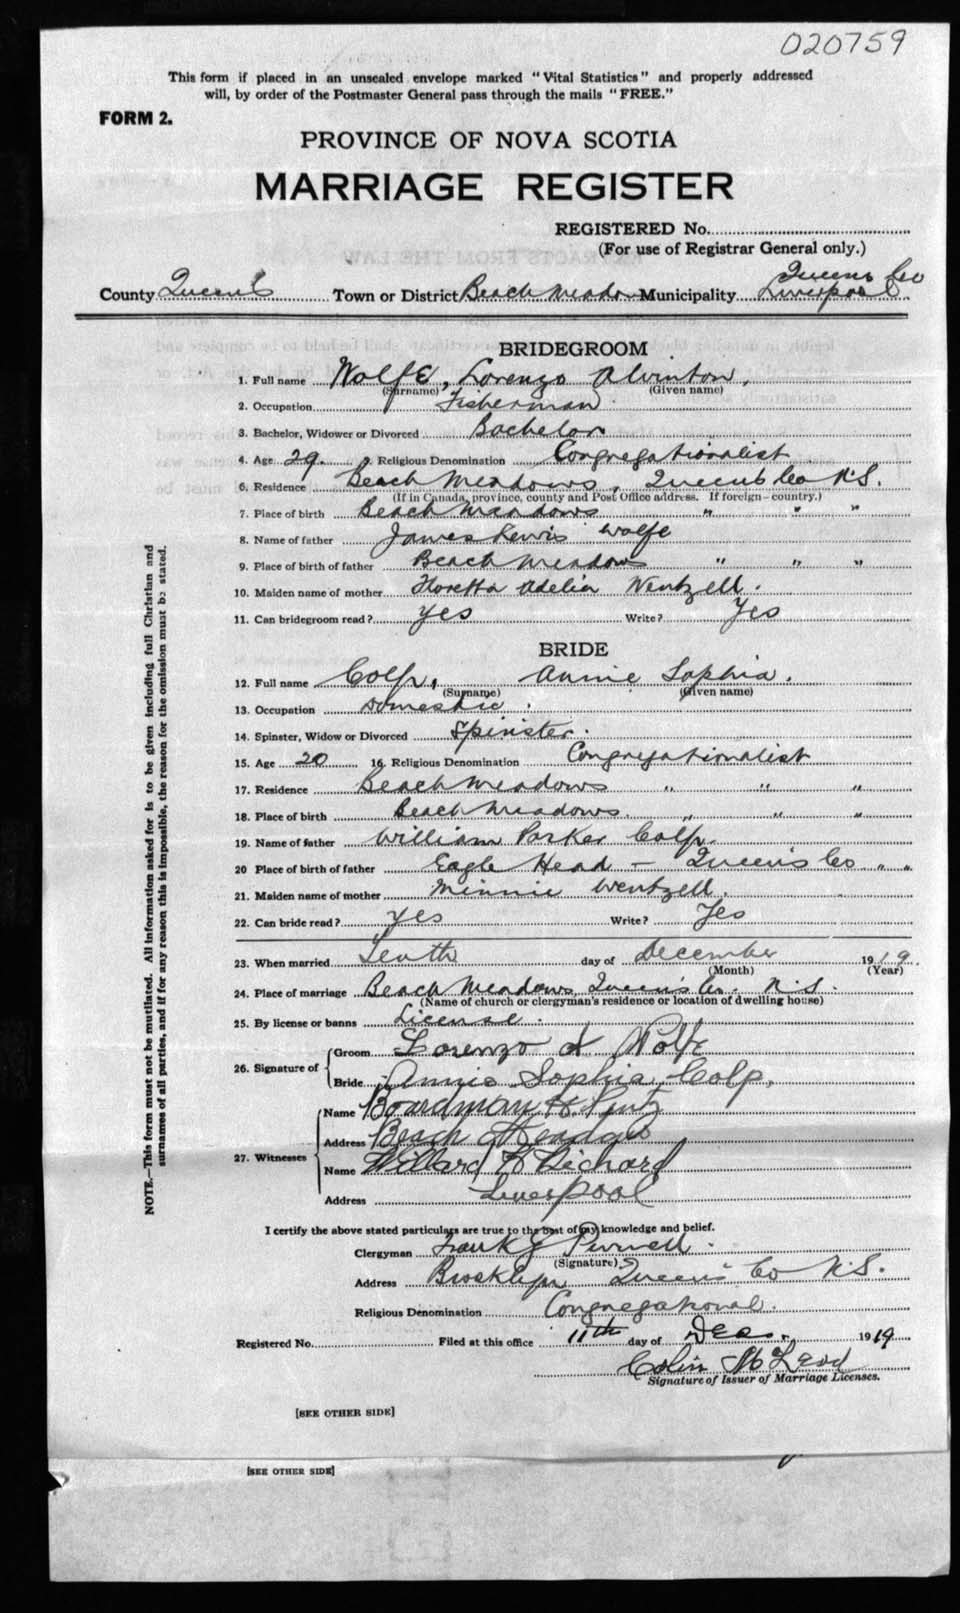 020759
This form if placed in an unsealed envelope marked "Vital Statistics" and properly addressed
will, by order of the Postmaster General pass through the mails "FREE."
FORM 2.
PROVINCE OF NOVA SCOTIA
MARRIAGE REGISTER
REGISTERED No.
(For use of Registrar General only.)
Queens Co
County Queen's Town or District Beach Meadow Municipality Liverpool
BRIDEGROOM
1. Full name Wolfe, Lorenzo Alvinton,
(Surname) (Given name)
2. Occupation Fisherman
3. Bachelor, Widower or Divorced Bachelor
4. Age 29. 5. Religious Denomination Congregationalist
6. Residence Beach Meadows, Queens Co N.S.
(If in Canada, province, county and Post Office address. If foreign—country.)
7. Place of birth Beach Meadows " " "
8. Name of father James Lewis Wolfe
9. Place of birth of father Beach Meadows " " "
10. Maiden name of mother Floretta Adelia Wentzell.
11. Can bridegroom read? Yes Write? Yes
BRIDE
12. Full name Colp, Annie Sophia.
(Surname) (Given name)
13. Occupation Domestic.
14. Spinster, Widow or Divorced Spinster.
15. Age 20 16. Religious Denomination Congregationalist
17. Residence Beach Meadows " " "
18. Place of birth Beach Meadows. " " "
19. Name of father William Parker Colp.
20 Place of birth of father Eagle Head — Queen's Co " "
21. Maiden name of mother Minnie Wentzell.
22. Can bride read? Yes Write? Yes
23. When married Tenth day of December 1919.
(Month) (Year)
24. Place of marriage Beach Meadows, Queens Co. N.S.
(Name of church or clergyman's residence or location of dwelling house)
25. By license or banns License.
26. Signature of Groom Lorenzo A Wolfe
Bride Annie Sophia Colp.
27. Witnesses Name Boardman H
Address Beach Meadows
Name Willard
Address Liverpool
I certify the above stated particulars are true to the best of my knowledge and belief.
Clergyman Frank J Purnell.
(Signature)
Address Brooklyn Queen's Co N.S.
Religious Denomination Congregational.
Registered No. Filed at this office 11th day of Dec. 1919
Colin McLeod
Signature of Issuer of Marriage Licenses.
[SEE OTHER SIDE]
[SEE OTHER SIDE]
NOTE.—This form must not be mutilated. All information asked for is to be given including full Christian and
surnames of all parties, and if for any reason this is impossible, the reason for the omission must be stated.